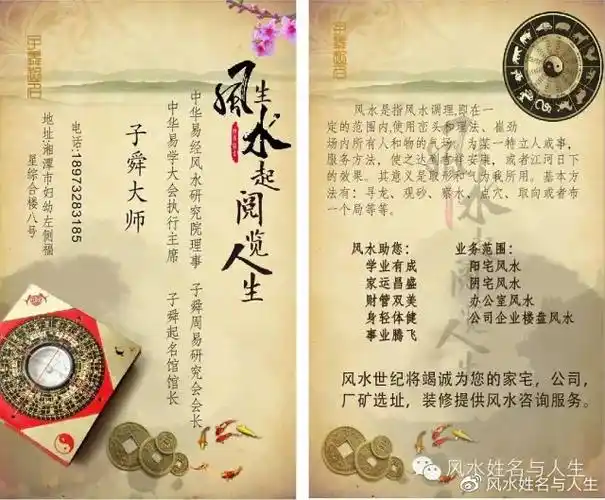 风生水起阅览人生
中华易经风水研究院理事 子舜周易研究会会长
中华易学大会执行主席 子舜起名馆馆长
子舜大师
电话:18973283185
地址:湘潭市妇幼左侧福
星综合楼八号
风水是指风水调理,即在一
定的范围内,使用峦头和理法、催劲
场内所有人和物的气场,为某一特立人或事,
服务方法,使之达到吉祥安康,或者江河日下
的效果。其意义是取形和气为我所用。基本方
法有:寻龙、观砂、察水、点穴、取向或者布
一个局等等。
风水助您:
学业有成
家运昌盛
财管双美
身轻体健
事业腾飞
业务范围:
阳宅风水
阴宅风水
办公室风水
公司企业楼盘风水
风水阅览人生
风水世纪将竭诚为您的家宅,公司,
厂矿选址,装修提供风水咨询服务。
风水姓名与人生
风水姓名与人生